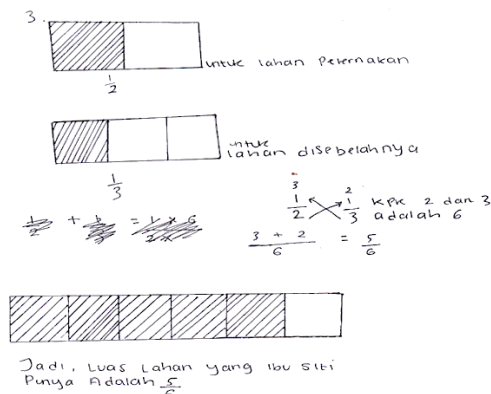 3.
untuk lahan Peternakan
1/2
untuk
lahan disebelahnya
1/3
3 2
1/2 1/3 KPK 2 dan 3
adalah 6
3 + 2 / 6 = 5/6
Jadi, Luas Lahan yang Ibu Siti
Punya Adalah 5/6